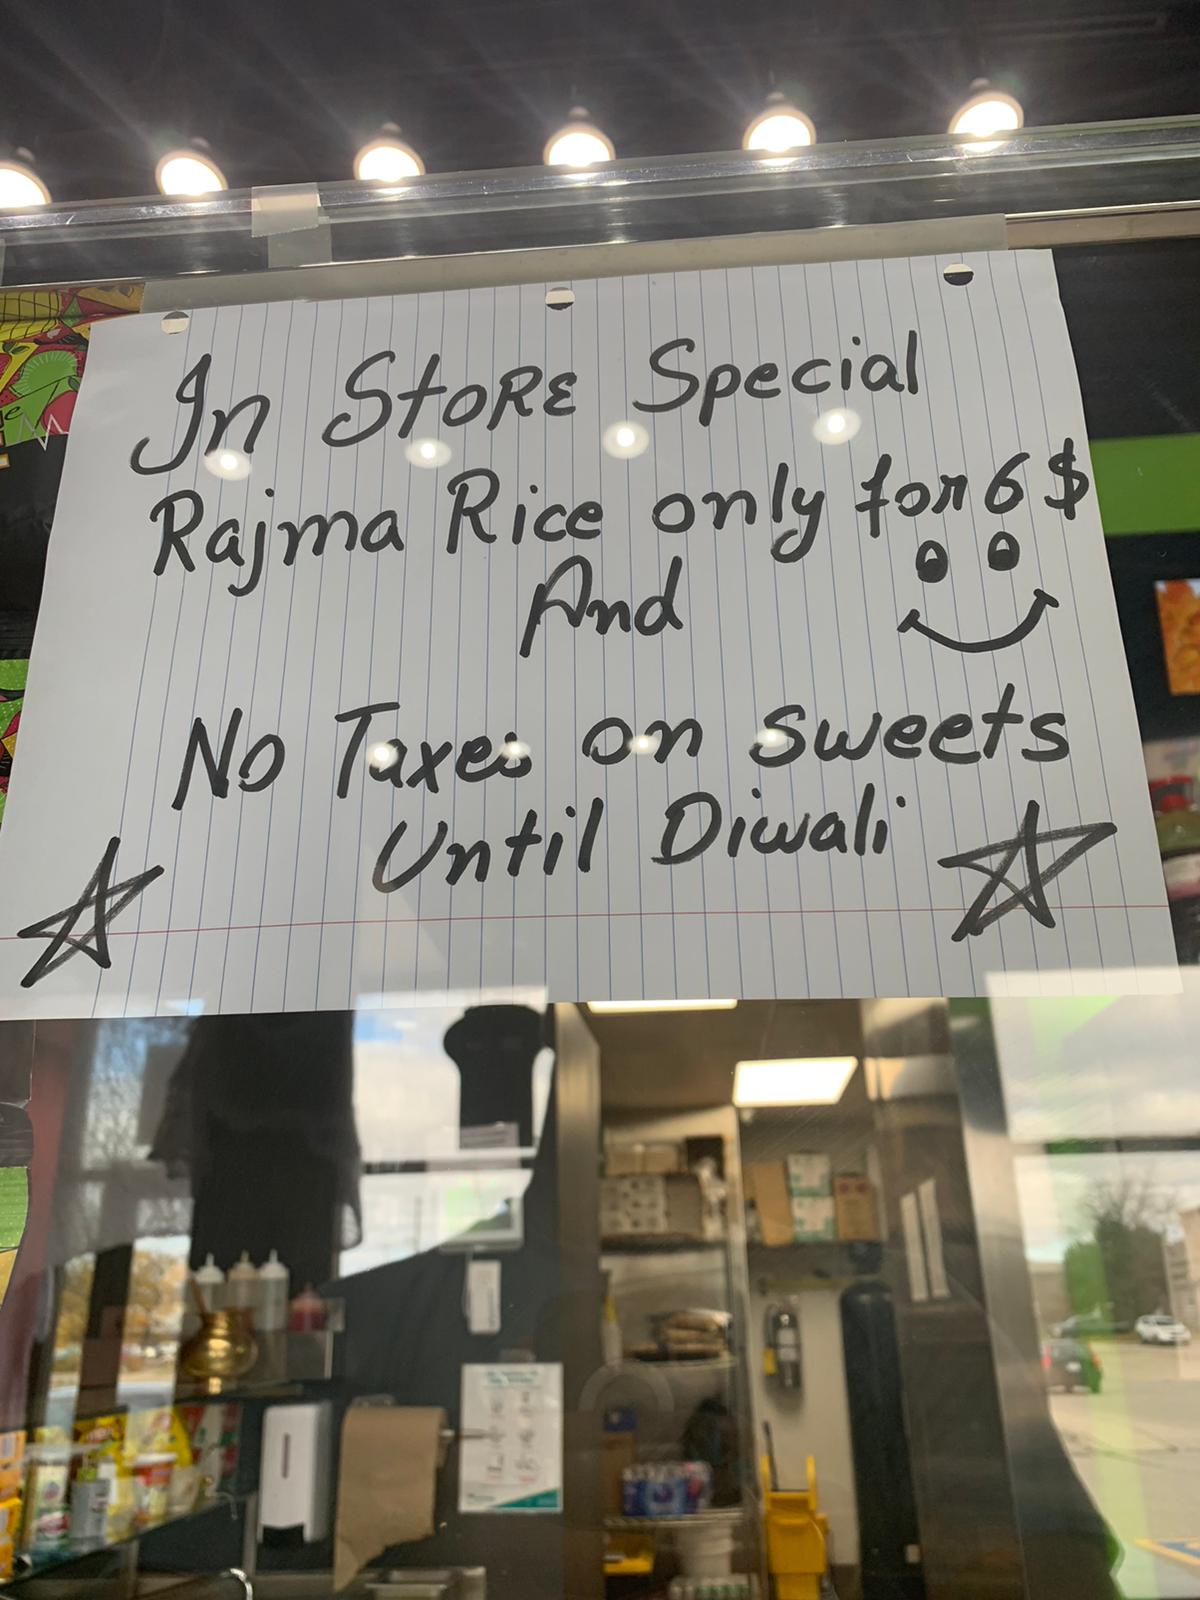 In Store Special
Rajma Rice only for 6 $
And
No Taxes on sweets
Until Diwali